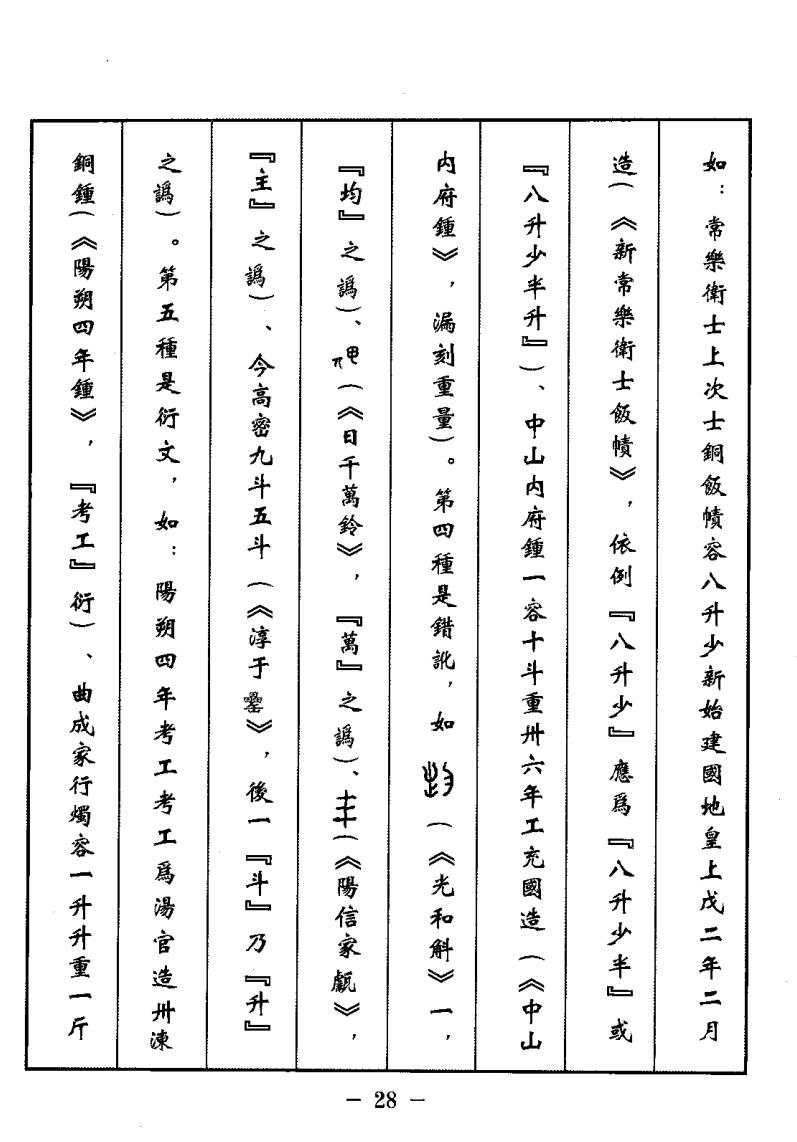 如：常樂衛士上次士銅飯幘容八升少新始建國地皇上戊二年二月
造（《新常樂衛士飯幘》，依例『八升少』應爲『八升少半』或
『八升少半升』）、中山內府鍾一容十斗重卅六年工充國造（《中山
內府鍾》，漏刻重量）。第四種是錯訛，如（《光和斛》一，
『均』之譌）、（《日千萬鈴》，『萬』之譌）、（《陽信家甗》，
『主』之譌）、今高密九斗五斗（《淳于罍》，後一『斗』乃『升』
之譌）。第五種是衍文，如：陽朔四年考工考工爲湯官造卅湅
銅鍾（《陽朔四年鍾》，『考工』衍）、曲成家行燭容一升升重一斤
— 28 —